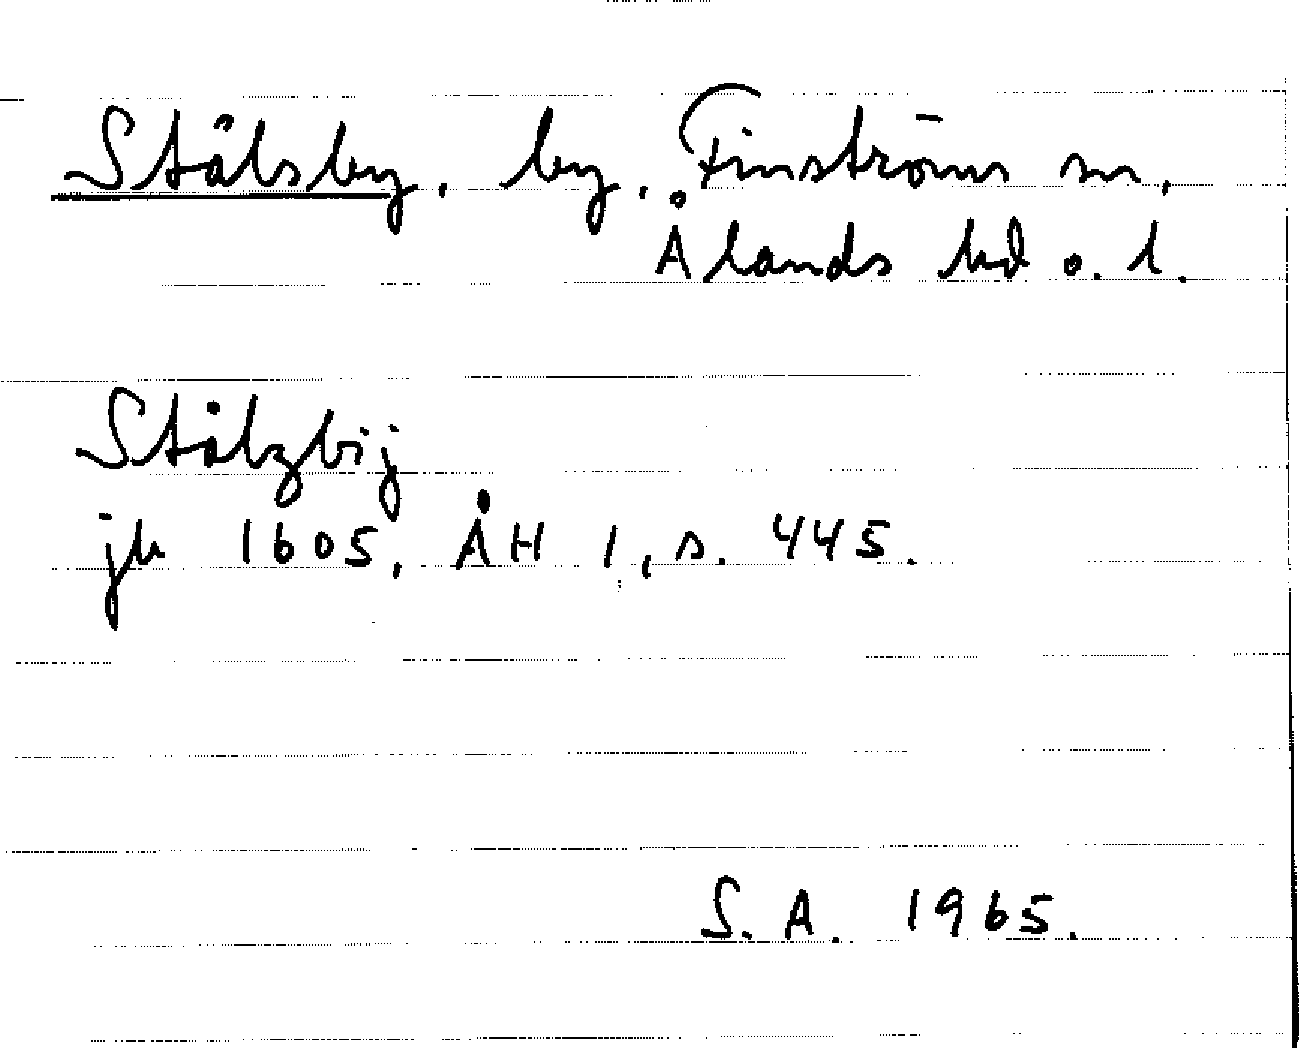 Stålsby, by, Finströms sn,
Ålands hd o. l.
Stålzbij
jb 1605, ÅH 1, s. 445.
S. A. 1965.